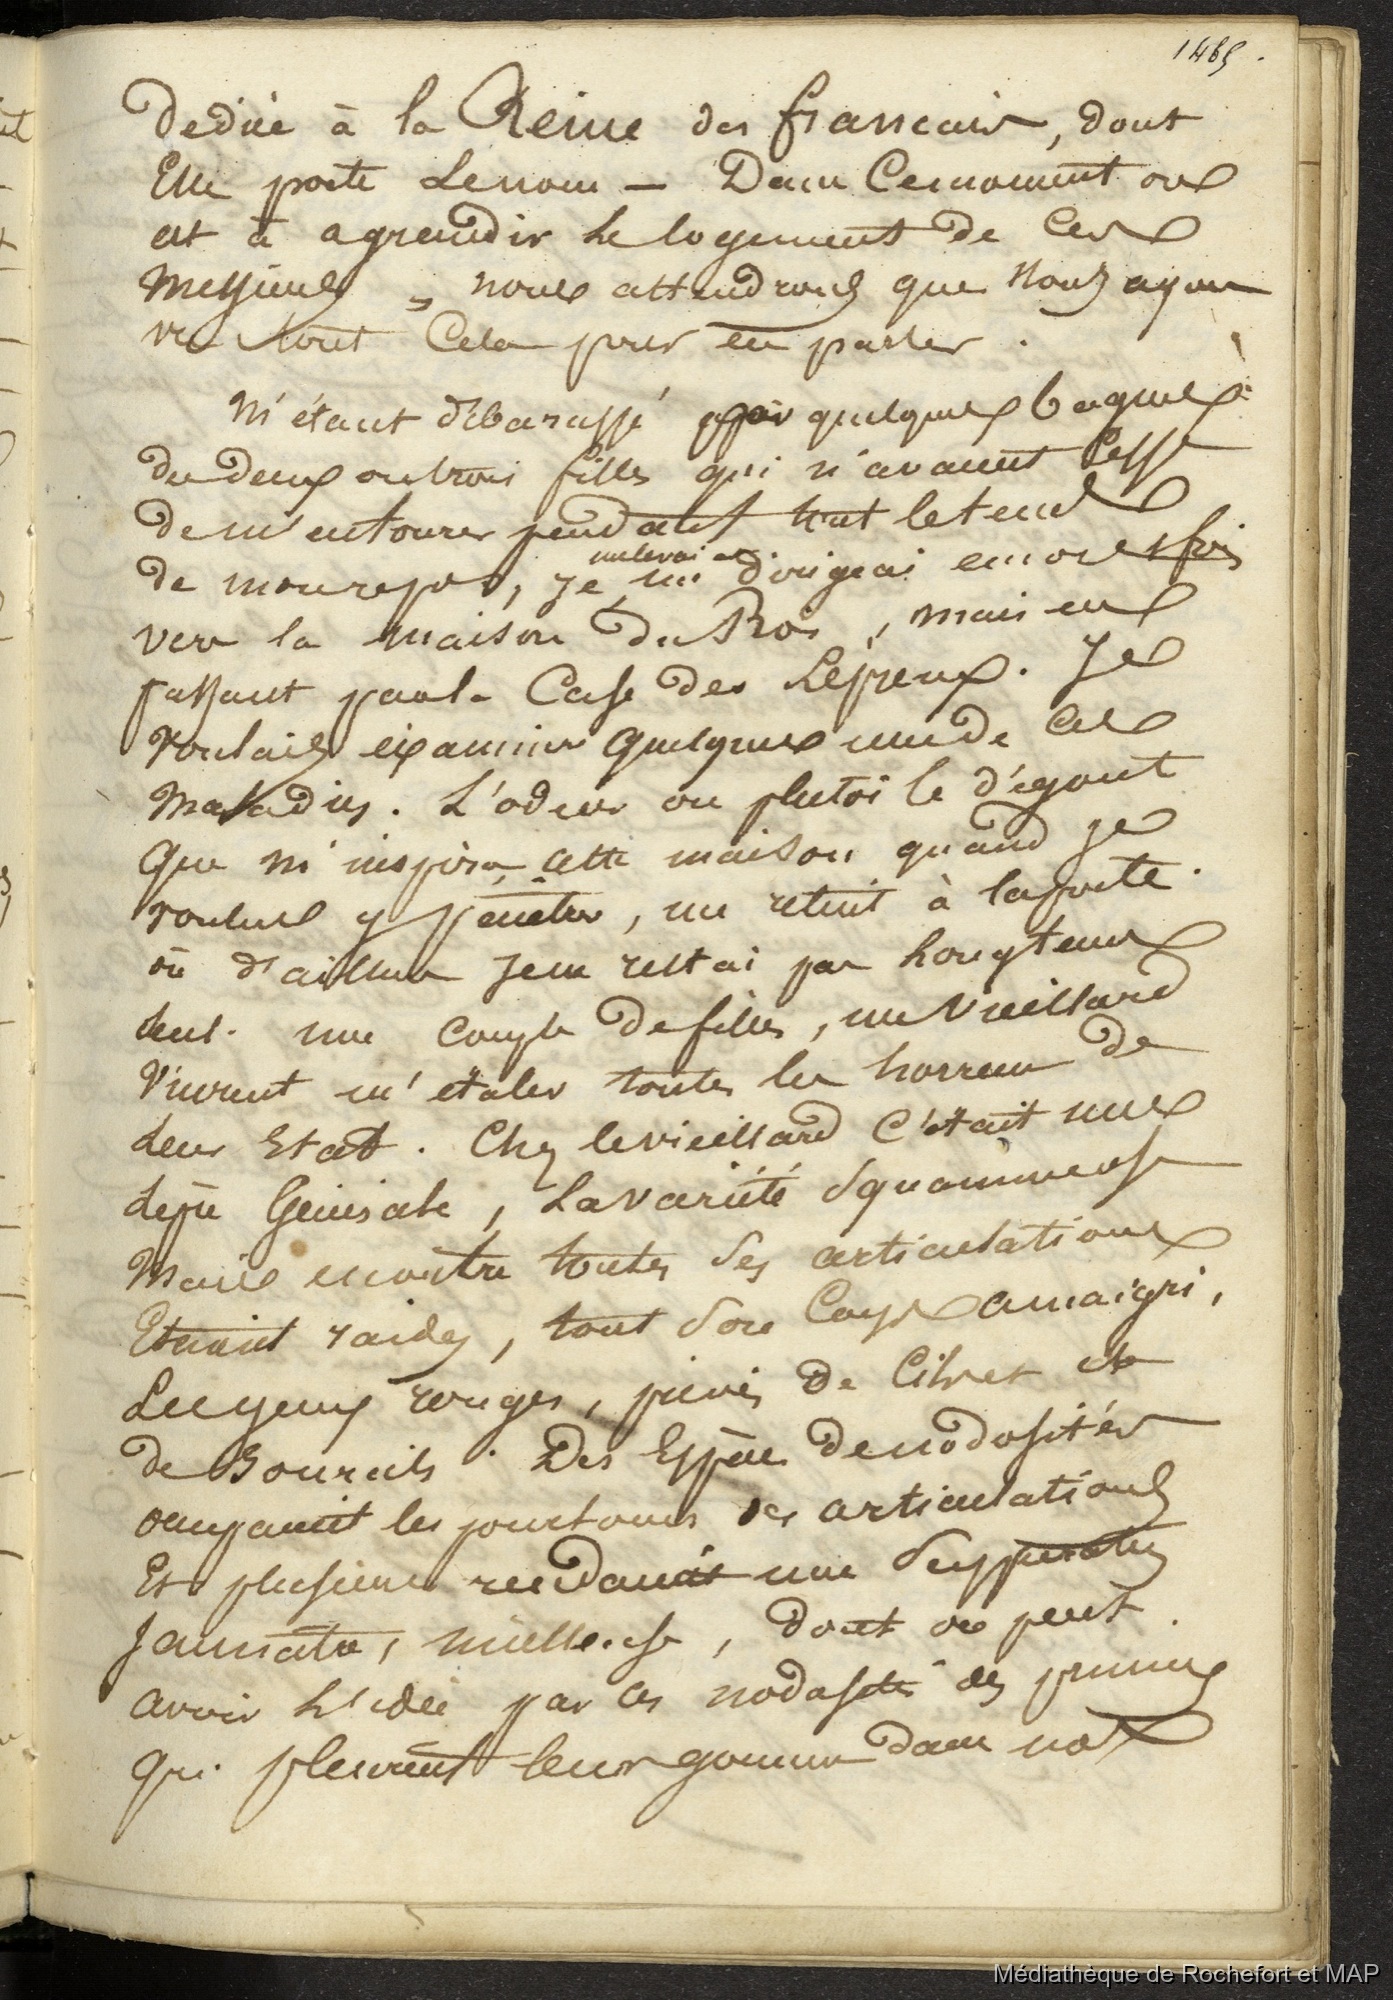 1465.
Dediée à la Reine des francais, dont
Elle porte Le nom — Dans Ce moment on
est à agrandir Le logement de Ces
Messieurs, nous attendrons que Nous ayons
vu tout Cela pour en parler.
M'étant débarassé par quelques bagues
de deux ou trois filles qui n'avaient Cessé
de m'entourer pendant tout le tems
me levai et
de mon repos, je me dirigeai encore
vers la maison du Roi, mais en
passant par la Case des Lépreux. Je
voulais examiner quelques unes de Ces
Maladies. L'odeur ou plutôt le dégout
que m'inspira cette maison quand je
voulus y pénétrer, me retint à la porte.
où d'ailleurs je ne restai pas Longtems
seul. une couple de filles, un Vieillard
Vinrent m'étaler toutes les horreurs de
leur Etat. Chez le vieillard C'était une
Lèpre Générale, La variété Squammeuse
Mais en outre toutes Ses articulations
Etaient raides, tout Son Corps amaigri,
Les yeux rouges, privés de Cils et
de Sourcils. Des Espèces de nodosités
occupaient les pourtours des articulations
Et plusieurs rendaient une Suppuration
Jaunatre, mielleuse, dont on peut
avoir L'idée par ces nodosités des pruniers
qui pleurent leur gomme dans nos
Médiathèque de Rochefort et MAP